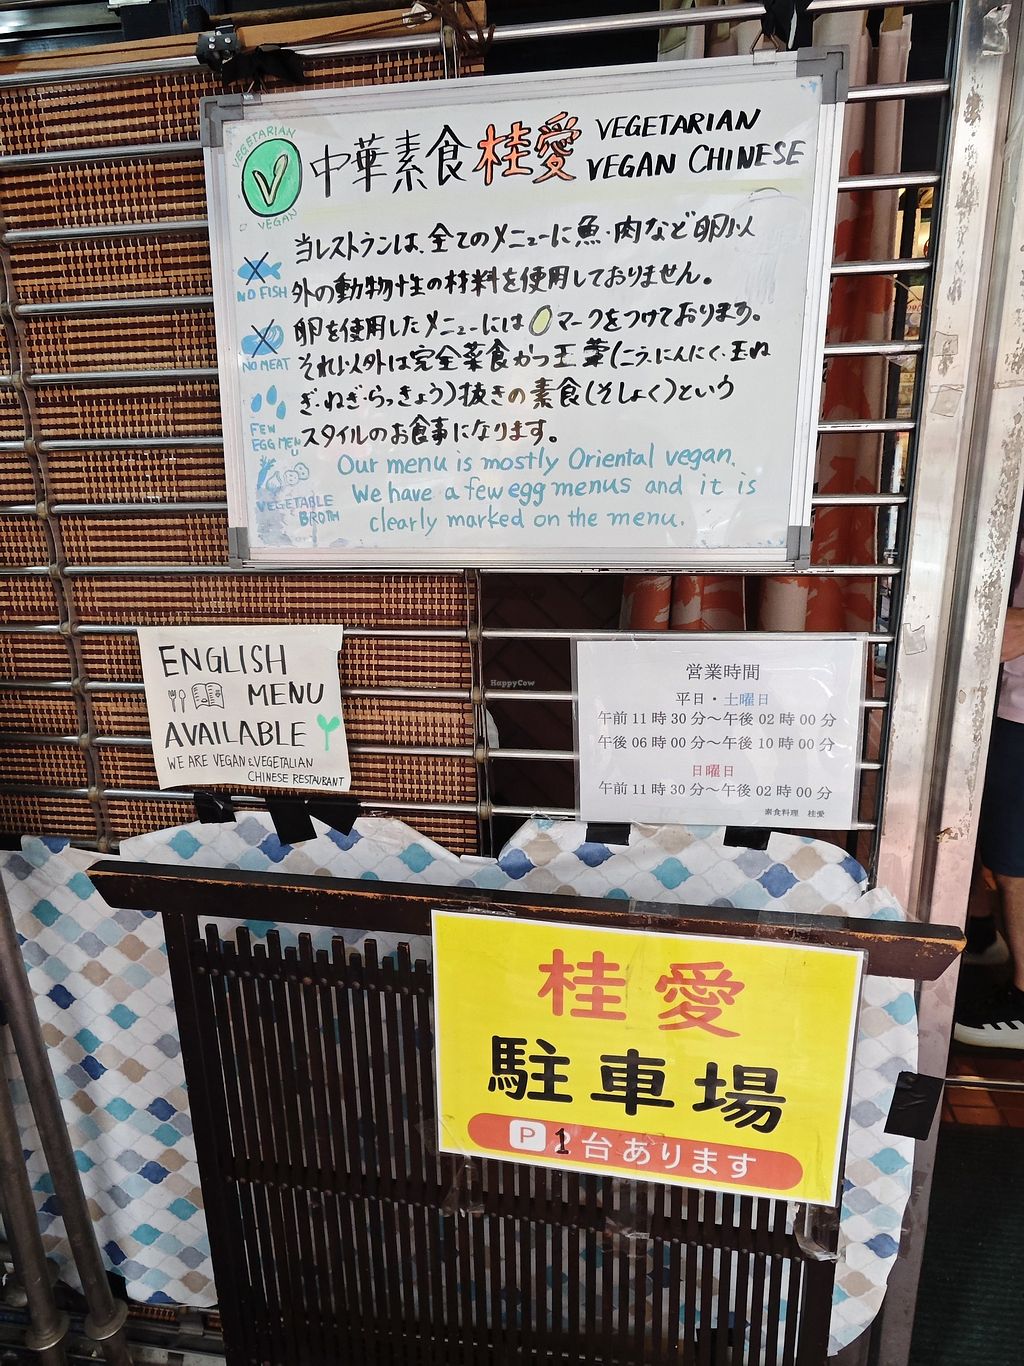 VEGETARIAN
V
VEGAN
中華素食桂愛
VEGETARIAN
VEGAN CHINESE
当レストランは、全てのメニューに魚・肉など卵以
外の動物性の材料を使用しておりません。
卵を使用したメニューには マークをつけております。
それ以外は完全菜食かつ五葷(ニラ・にんにく・玉ね
ぎ・ねぎ・らっきょう)抜きの素食(そしょく)という
スタイルのお食事になります。
NO FISH
NO MEAT
FEW
EGG MENU
VEGETABLE
BROTH
Our menu is mostly Oriental vegan.
We have a few egg menus and it is
clearly marked on the menu.
ENGLISH
MENU
AVAILABLE
WE ARE VEGAN & VEGETALIAN
CHINESE RESTAURANT
HappyCow
営業時間
平日・土曜日
午前 11 時 30 分～午後 02 時 00 分
午後 06 時 00 分～午後 10 時 00 分
日曜日
午前 11 時 30 分～午後 02 時 00 分
素食料理 桂愛
桂愛
駐車場
P 1台あります